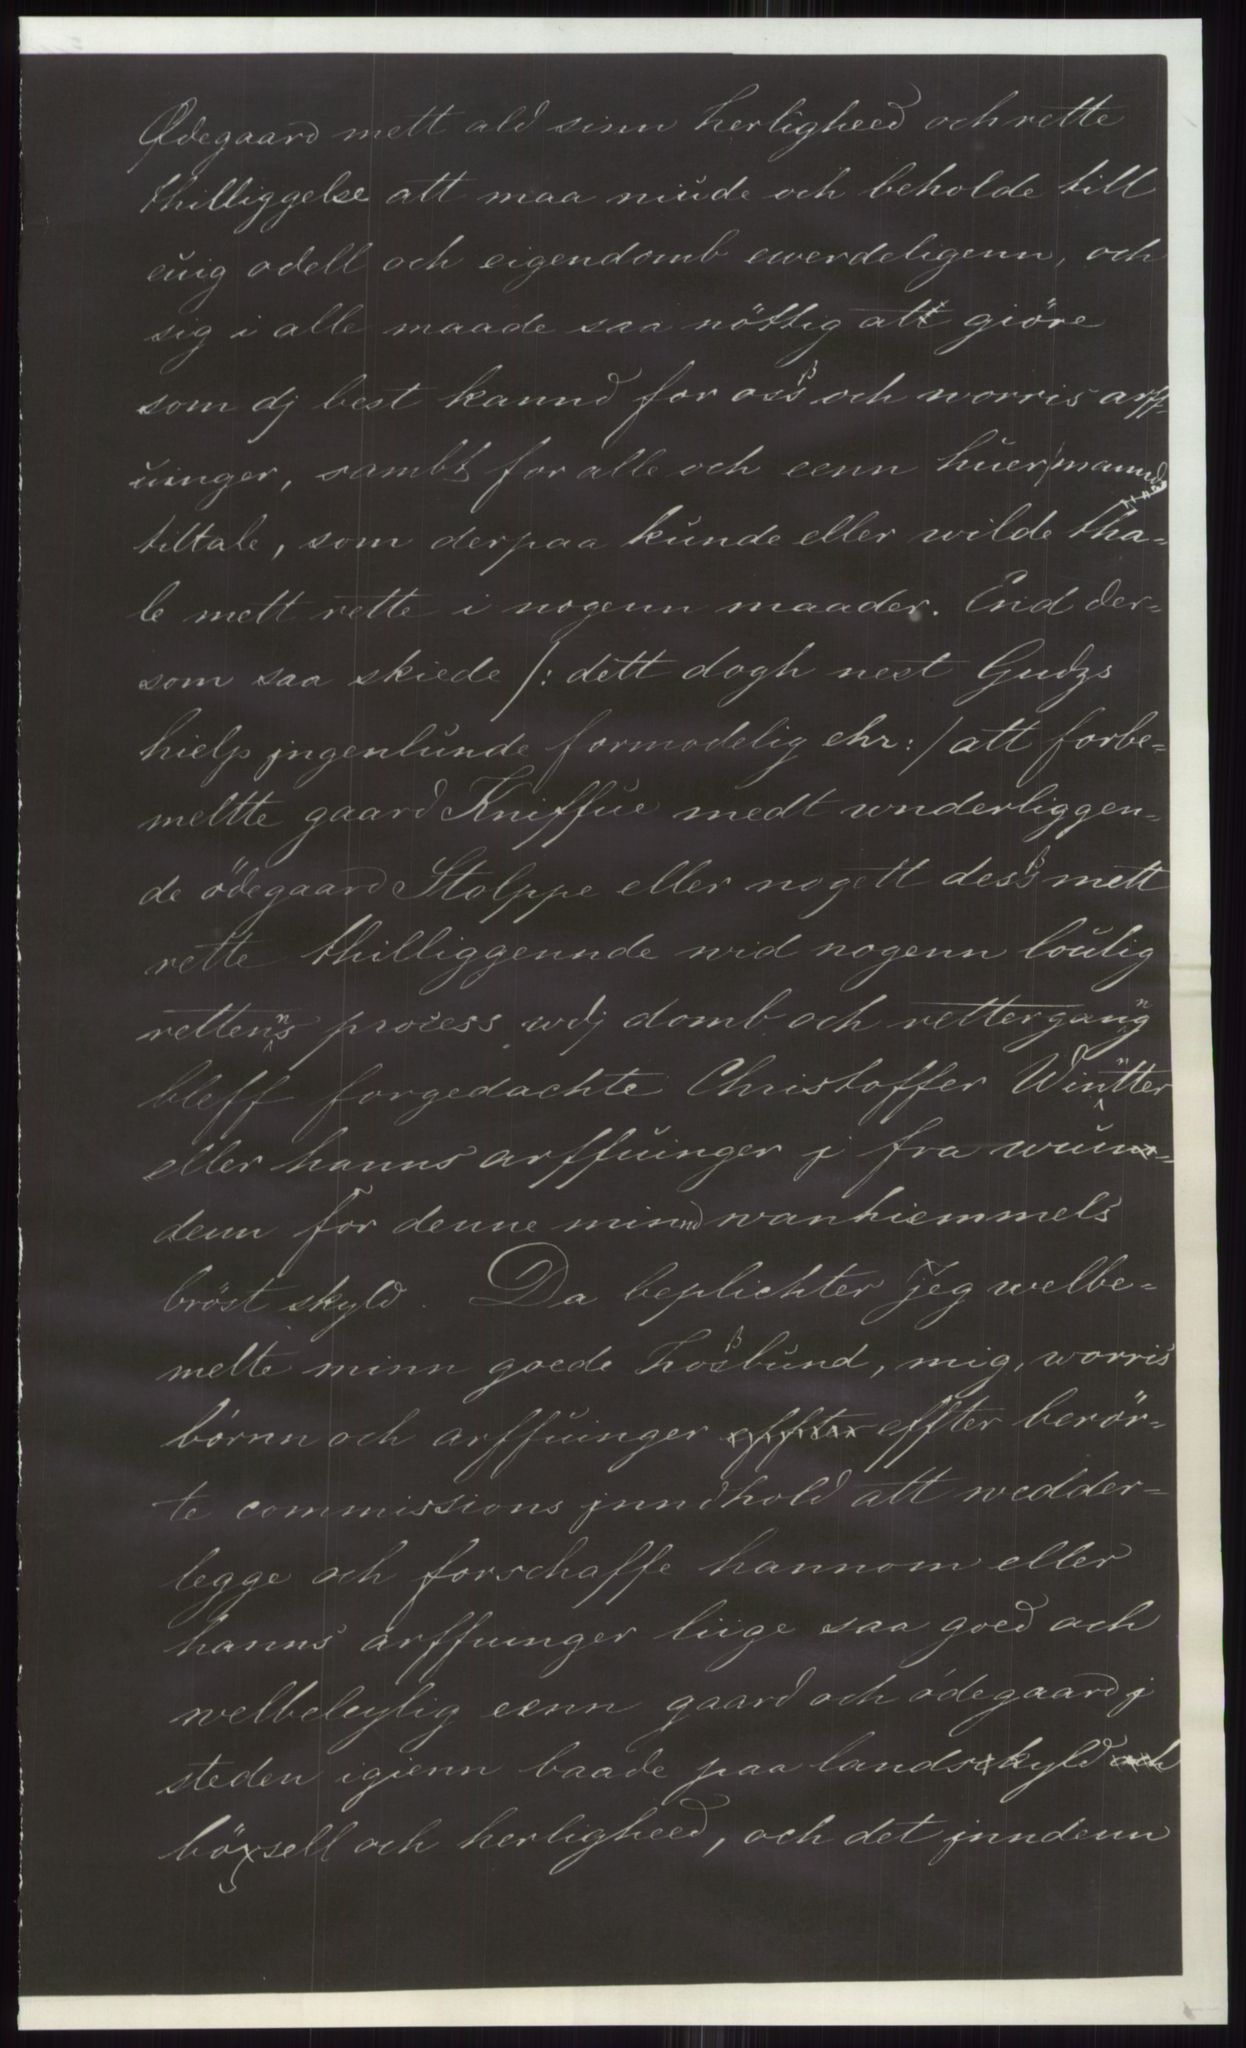 Ødegaard mett ald sinn herligheed och rette
thilliggelse att maa niüde och beholde till
eüig odell och eigendomb ewerdeligenn, och
sig i alle maade saa nöttig att giöre
som dj best kannd for oss och worris arff-
üinger, sambt for alle och eenn hüer mannds
tiltale, som derpaa künde eller wilde tha-
le mett rette i nogenn maader. End der-
som saa skiede /: dett dogh nest Gudzs
hielp jngenlünde formodelig ehr: / att forbe-
meltte gaard Kniffüe medt wnderliggen-
de ödegaard Stolppe eller nogett dess mett
rette thilliggennde wid nogenn loülig
rettenns process wdj domb och rettergang
bleff forgedachte Christoffer Wintter
eller hanns arffüinger j fra wün-
denn for denne minnd wanhiemmels
bröst skyld. Da beplichter Jeg welbe-
melte minn goede hosbünd, mig, worris
börnn och arffüinger effter berör-
te commissions jnndhold att wedder-
legge och forschaffe hannom eller
hanns arffuinger liige saa goed och
welbeleylig eenn gaard och ödegaard j
steden igienn baade paa landskyld
böxsell och herligheed, och det jnndenn